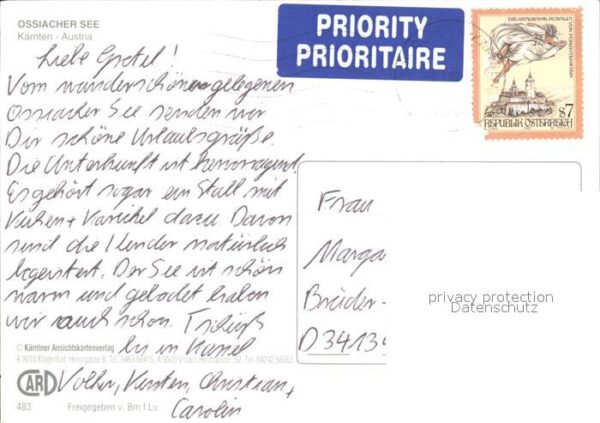 OSSIACHER SEE
Kärnten - Austria
PRIORITY
PRIORITAIRE
DIE GRAUSAME ROSALIA VON FORCHTENSTEIN
S7
REPUBLIK ÖSTERREICH
Liebe Gretel!
Vom wunderschönen gelegenen
Ossiacher See senden wir
Dir schöne Urlaubsgrüße.
Die Unterkunft ist hervorragend.
Es gehört sogar ein Stall mit
Kühen + Kanickel dazu. Davon
sind die Kinder natürlich
begeistert. Der See ist schön
warm und gebadet haben
wir auch schon. Tschüß
bis in Kassel
Volker, Kersten, Christian, +
Carolin
Frau
Marga
Brüder-
D 3413
privacy protection
Datenschutz
© Kärntner Ansichtskartenverlag
A 9010 Klagenfurt, Heinzgasse 8, Tel. 0463 56475, A 9500 Villach
52, Tel. 04242 56062
CARD
483 Freigegeben v. Bm.f.Lv.